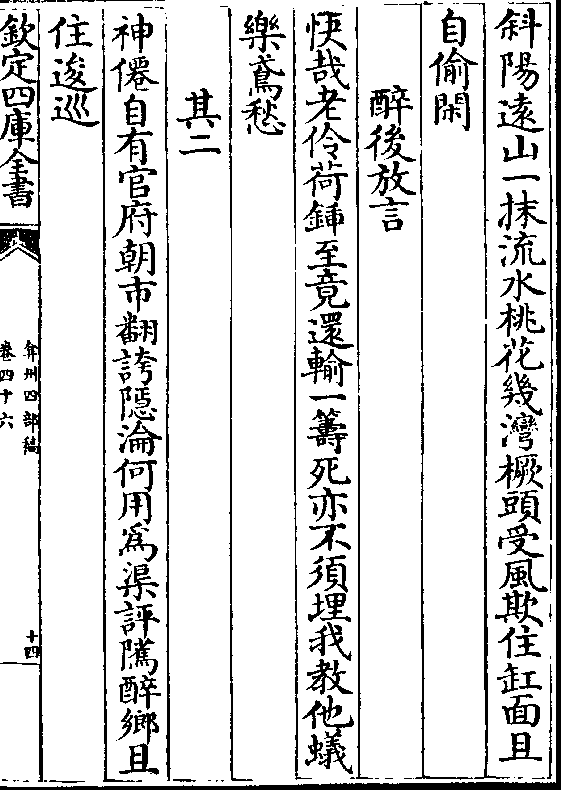 斜陽遠山一抹流水桃花幾灣橛頭受風欺住缸面且
自偷閑
醉後放言
快哉老伶荷鍤至竟還輸一籌死亦不須埋我教他蟻
樂鳶愁
其二
神僊自有官府朝市翻誇隱淪何用為渠評隲醉鄉且
住逡巡
欽定四庫全書
弇州四部稿
卷四十六
十四